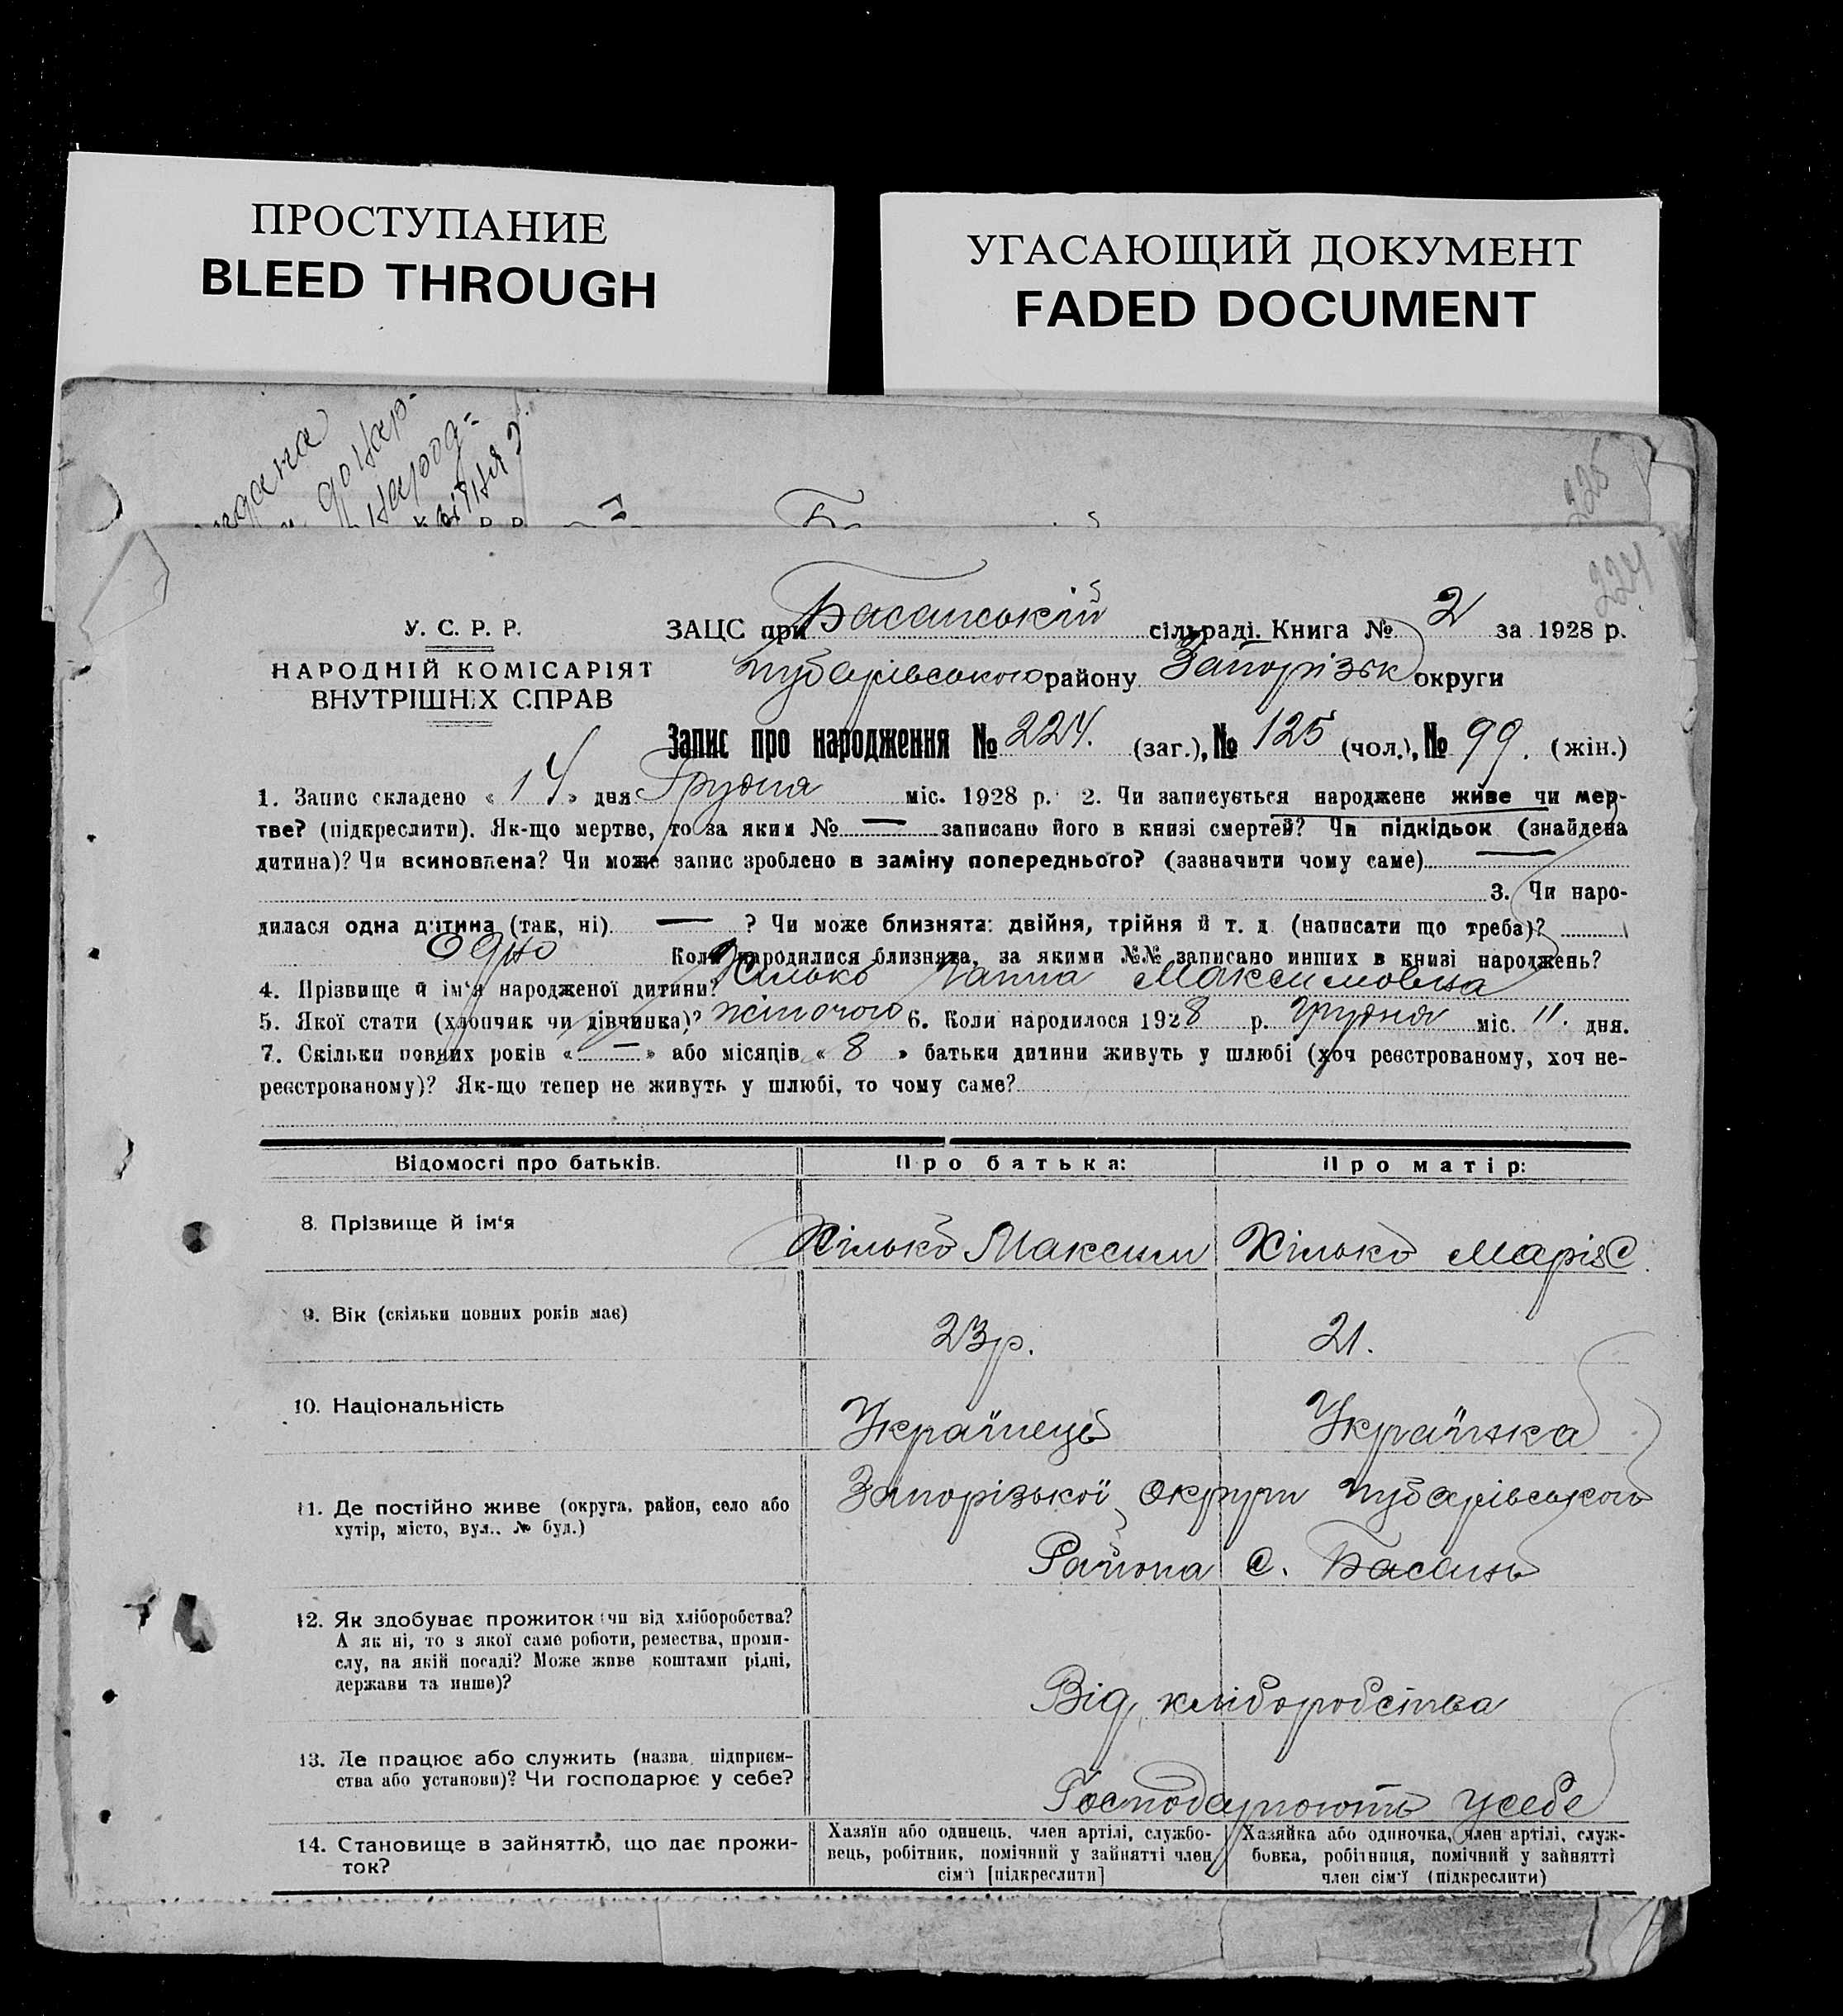 ПРОСТУПАНИЕ
BLEED THROUGH
УГАСАЮЩИЙ ДОКУМЕНТ
FADED DOCUMENT
225
224
У. С. Р. Р.
НАРОДНІЙ КОМІСАРІЯТ
ВНУТРІШНІХ СПРАВ
ЗАЦС при Басанській сільраді. Книга № 2 за 1928 р.
Чубарівського району Запорізьк округи
Запис про народження № 224. (заг.), № 125 (чол.), № 99. (жін.)
1. Запис складено « 14 » дня Грудня міс. 1928 р. 2. Чи записується народжене живе чи мер-
тве? (підкреслити). Як-що мертве, то за яким № — записано його в книзі смертей? Чи підкідьок (знайдена
дитина)? Чи всиновлена? Чи може запис зроблено в заміну попереднього? (зазначити чому саме) —
3. Чи наро-
дилася одна дитина (так, ні) — ? Чи може близнята: двійня, трійня й т. д. (написати що треба)?
Одно Коли народилися близнята, за якими №№ записано инших в книзі народжень?
4. Прізвище й ім'я народженої дитини? Хілько Ганна Максимовна
5. Якої стати (хлопчик чи дівчинка)? жіночого 6. Коли народилось 1928 р. Грудня міс. 11. дня.
7. Скільки повних років « — » або місяців « 8 » батьки дитини живуть у шлюбі (хоч реєстрованому, хоч не-
реєстрованому)? Як-що тепер не живуть у шлюбі, то чому саме?
Відомості про батьків. Про батька: Про матір:
8. Прізвище й ім'я Хілько Максим Хілько Марія С.
9. Вік (скільки повних років має) 23 р. 21.
10. Національність Українець Українка
11. Де постійно живе (округа, район, село або
хутір, місто, вул., № буд.)
Запорізької округи Чубарівського
Района с. Басань
12. Як здобуває прожиток (чи від хліборобства?
А як ні, то з якої саме роботи, ремества, проми-
слу, на якій посаді? Може живе коштами рідні,
держави та инше)?
Від хліборобства
13. Де працює або служить (назва підприєм-
ства або установи)? Чи господарює у себе?
Господарюють усебе
14. Становище в зайняттю, що дає прожи-
ток?
Хазяїн або одинець, член артілі, службо-
вець, робітник, помічний у зайнятті член
сім'ї [підкреслити]
Хазяйка або одиночка, член артілі, служ-
бовка, робітниця, помічний у зайнятті
член сім'ї (підкреслити)